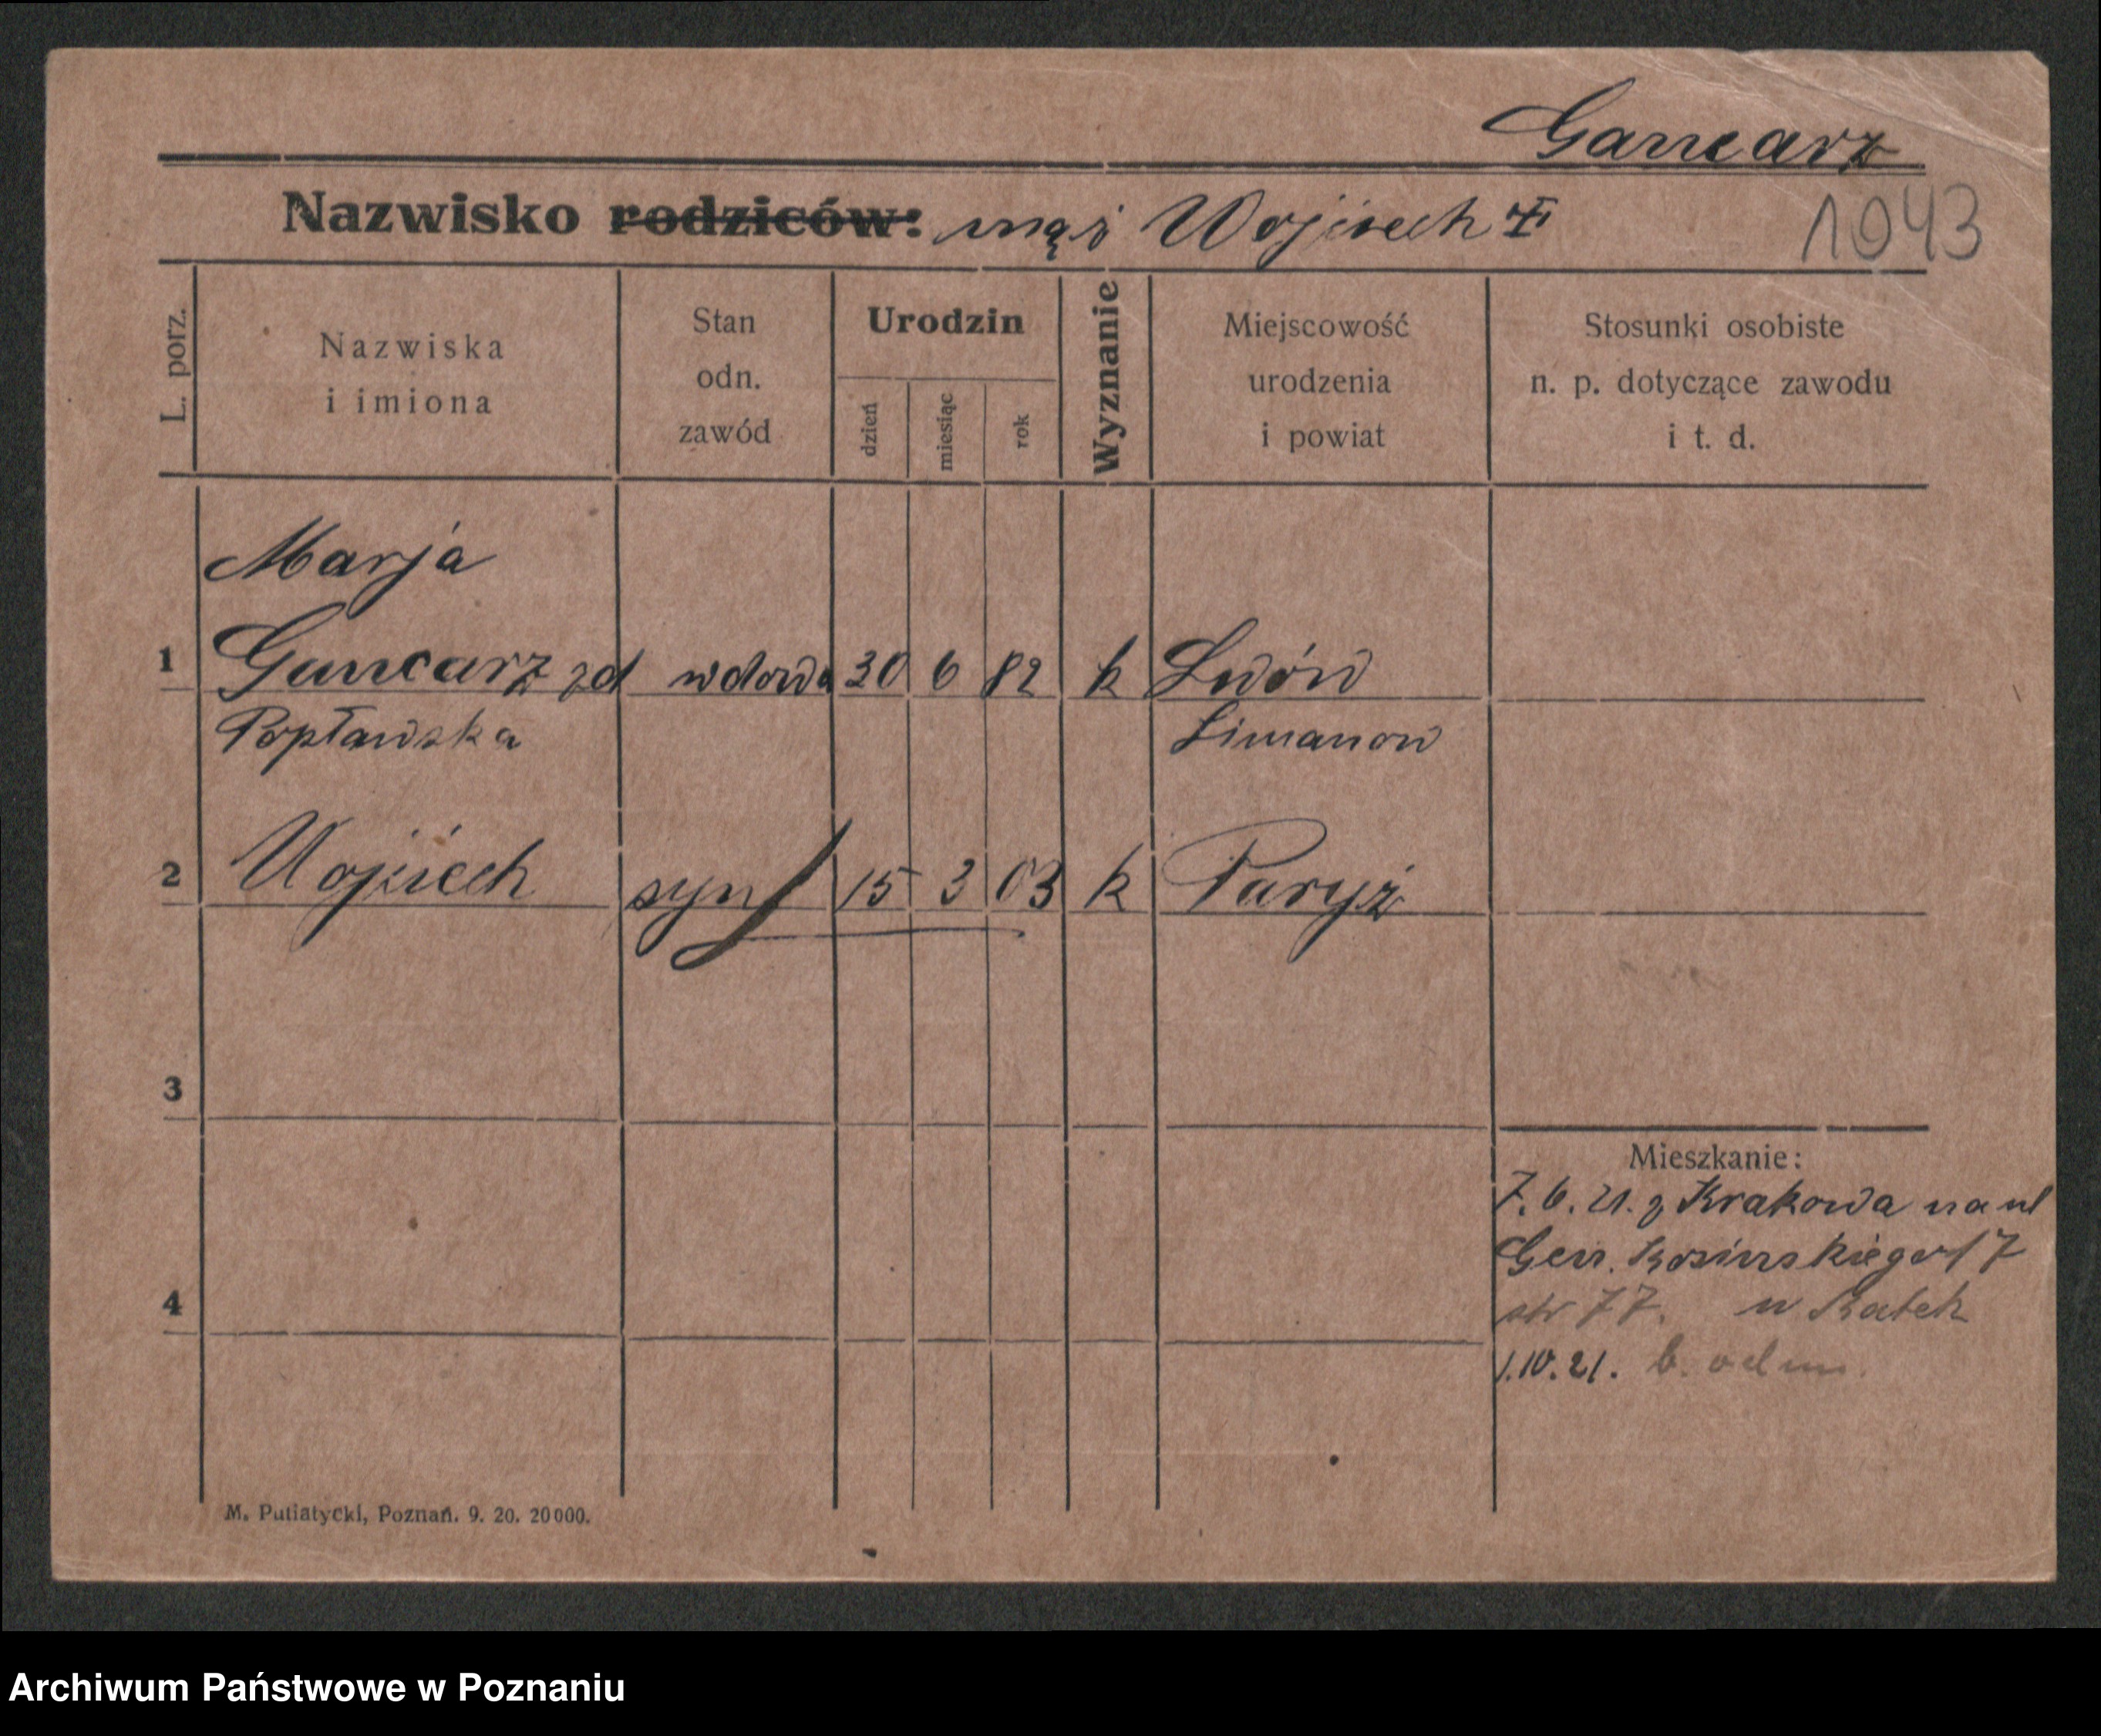 Gancarz
Nazwisko rodziców: mąż Wojciech
1043
L. porz.
Nazwiska
i imiona
Stan
odn.
zawód
Urodzin
dzień
miesiąc
rok
Wyznanie
Miejscowość
urodzenia
i powiat
Stosunki osobiste
n. p. dotyczące zawodu
i t. d.
Marja
1 Gancarz zd wdowa 30 6 82 k Lwów
Popławska Limanow
2 Wojciech syn 15 3 03 k Paryż
3
Mieszkanie:
7. 6. 21. z Krakowa na ul
Gen. Kosinskiego 17
4
str 77. u Ratek
1. 10. 21. b. odm.
M. Putiatycki, Poznań. 9. 20. 20000.
Archiwum Państwowe w Poznaniu